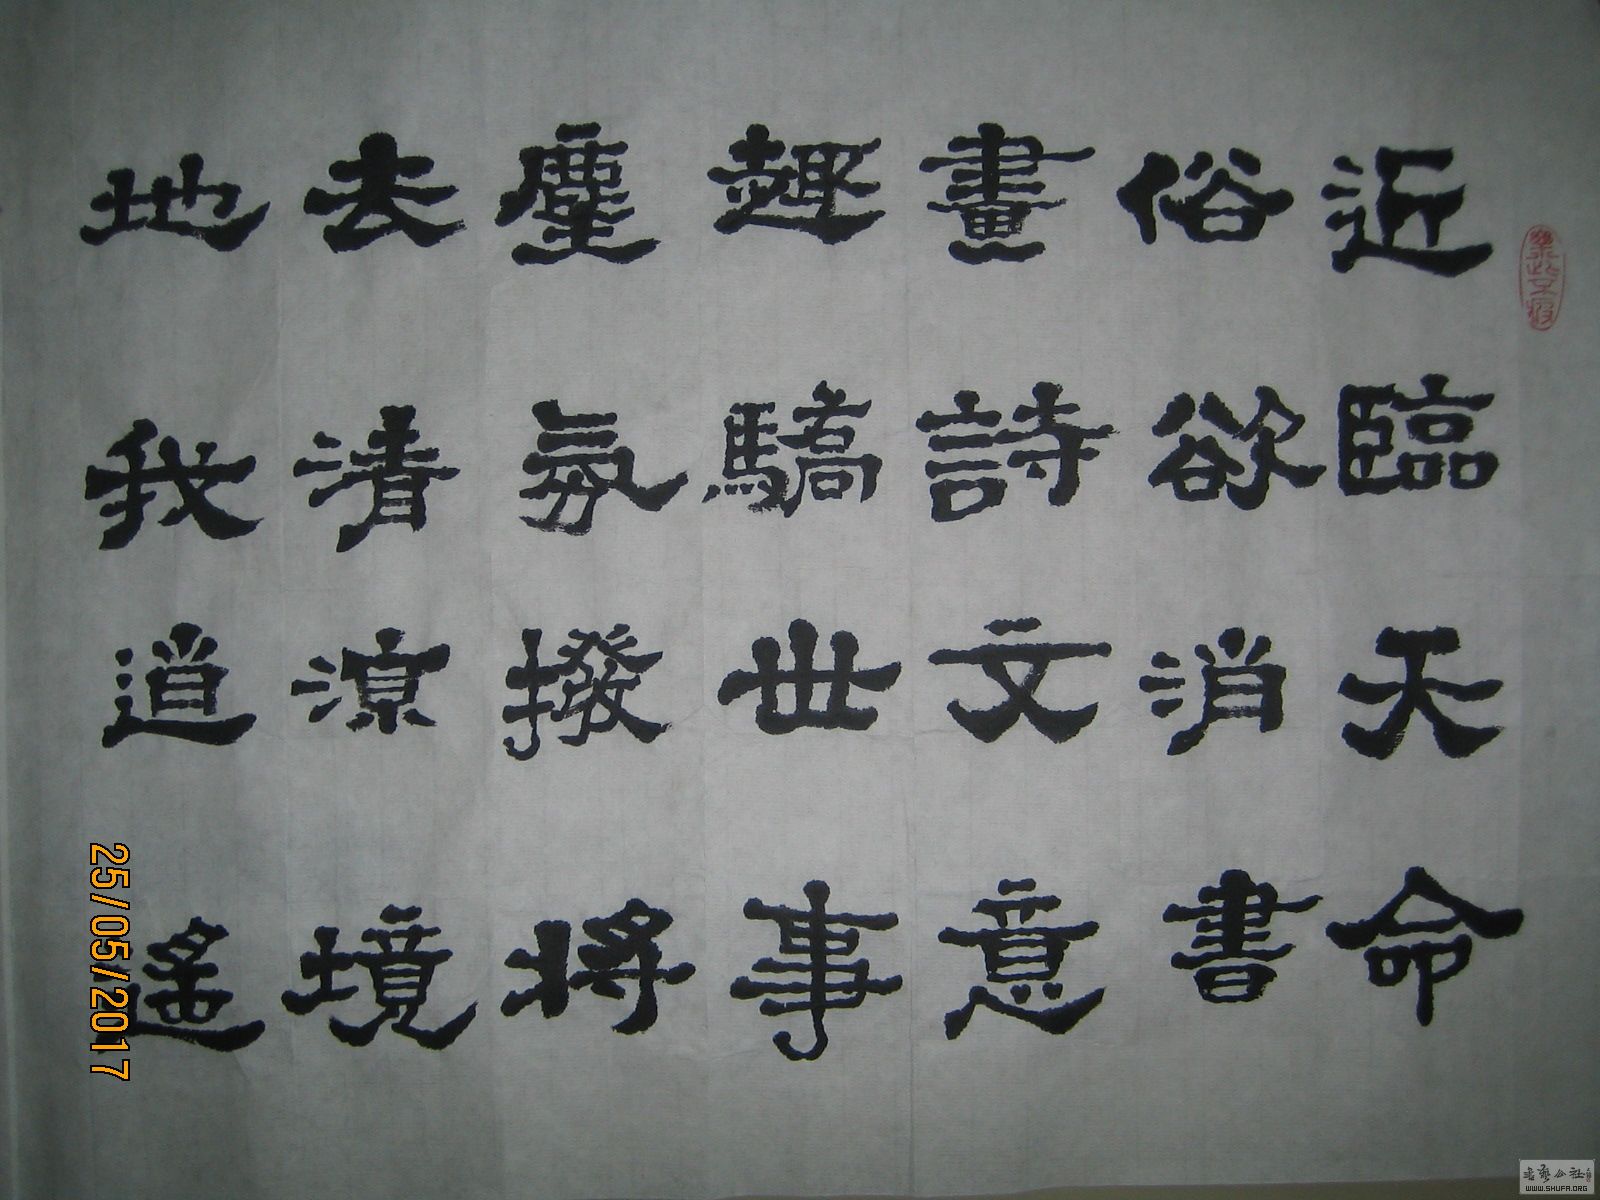 近臨天命
俗欲消書
畫詩文意
趣驕世事
塵氛撥將
去清涼境
地我逍遙
25/05/2017
WWW.SHUFA.ORG